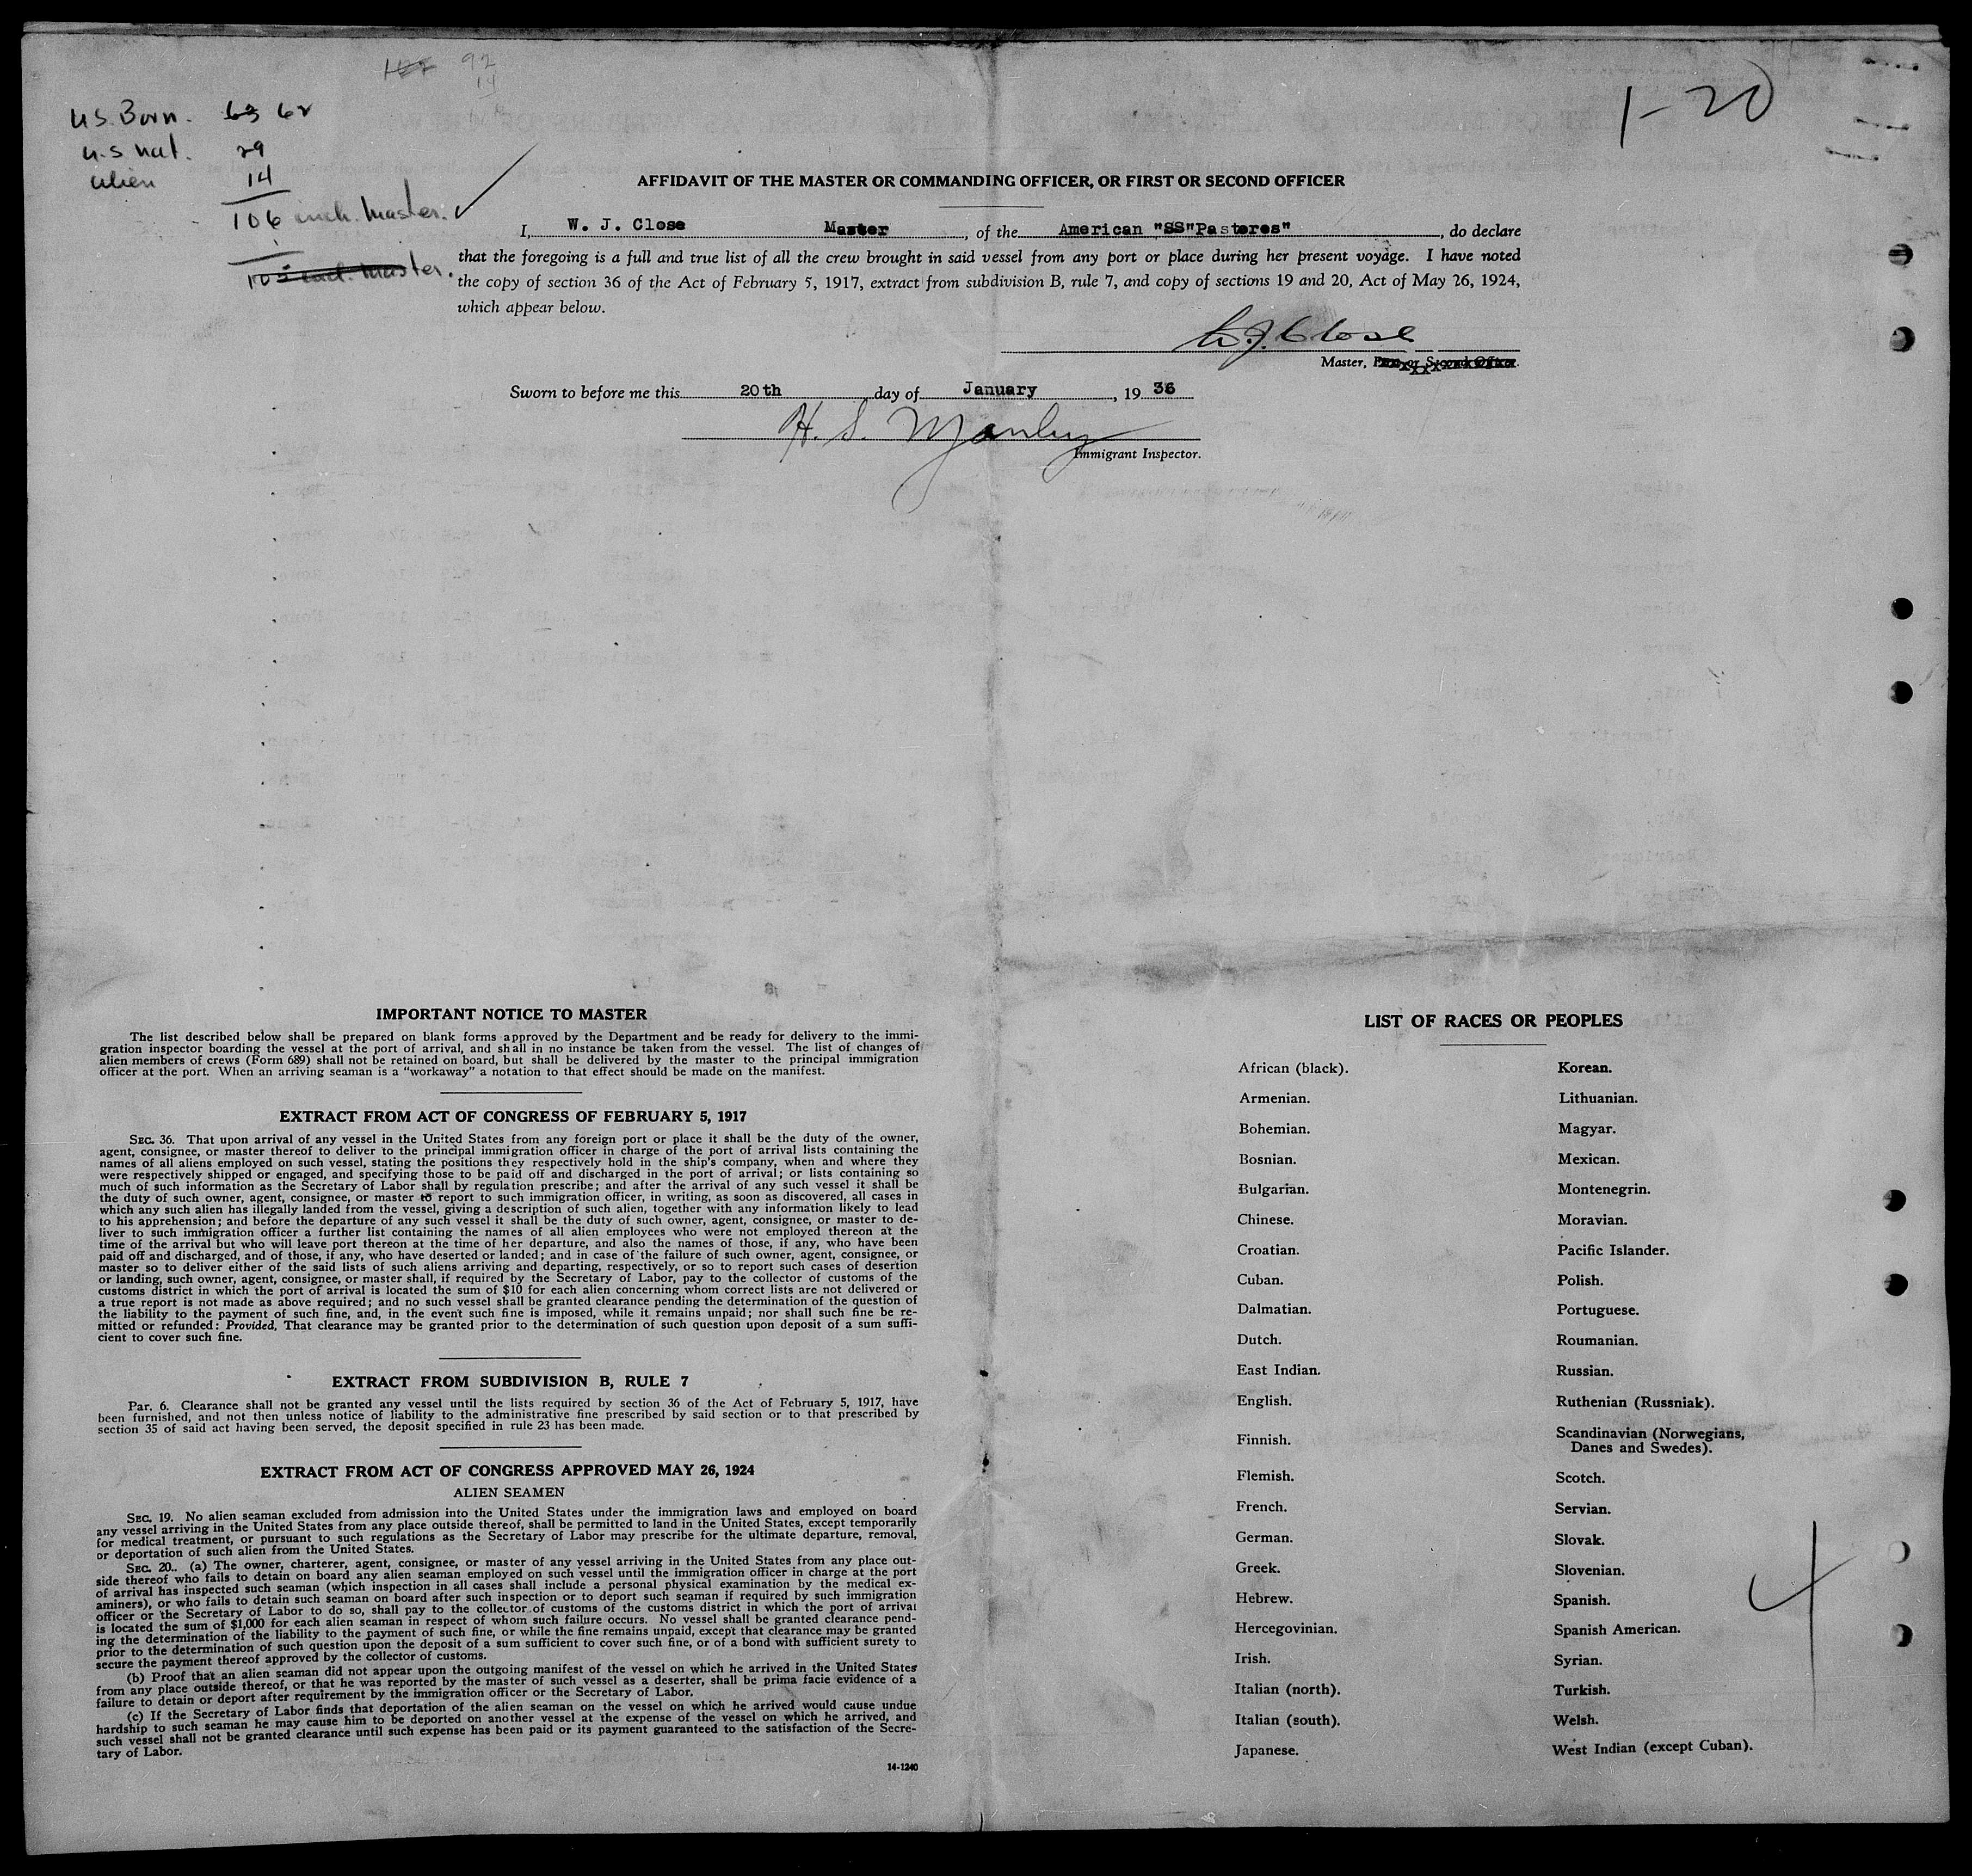 92
14
1-20
U.S. Born. 63 62
U.S. nat. 29
alien 14
106 incl. Master.
105 incl. Master.
AFFIDAVIT OF THE MASTER OR COMMANDING OFFICER, OR FIRST OR SECOND OFFICER
I, W. J. Close Master, of the American "SS"Pastores", do declare
that the foregoing is a full and true list of all the crew brought in said vessel from any port or place during her present voyage. I have noted
the copy of section 36 of the Act of February 5, 1917, extract from subdivision B, rule 7, and copy of sections 19 and 20, Act of May 26, 1924,
which appear below.
W. J. Close
Master, First or Second Officer.
Sworn to before me this 20th day of January, 1936
H. S. Manley
Immigrant Inspector.
IMPORTANT NOTICE TO MASTER
The list described below shall be prepared on blank forms approved by the Department and be ready for delivery to the immi-
gration inspector boarding the vessel at the port of arrival, and shall in no instance be taken from the vessel. The list of changes of
alien members of crews (Form 689) shall not be retained on board, but shall be delivered by the master to the principal immigration
officer at the port. When an arriving seaman is a "workaway" a notation to that effect should be made on the manifest.
EXTRACT FROM ACT OF CONGRESS OF FEBRUARY 5, 1917
SEC. 36. That upon arrival of any vessel in the United States from any foreign port or place it shall be the duty of the owner,
agent, consignee, or master thereof to deliver to the principal immigration officer in charge of the port of arrival lists containing the
names of all aliens employed on such vessel, stating the positions they respectively hold in the ship's company, when and where they
were respectively shipped or engaged, and specifying those to be paid off and discharged in the port of arrival; or lists containing so
much of such information as the Secretary of Labor shall by regulation prescribe; and after the arrival of any such vessel it shall be
the duty of such owner, agent, consignee, or master to report to such immigration officer, in writing, as soon as discovered, all cases in
which any such alien has illegally landed from the vessel, giving a description of such alien, together with any information likely to lead
to his apprehension; and before the departure of any such vessel it shall be the duty of such owner, agent, consignee, or master to de-
liver to such immigration officer a further list containing the names of all alien employees who were not employed thereon at the
time of the arrival but who will leave port thereon at the time of her departure, and also the names of those, if any, who have been
paid off and discharged, and of those, if any, who have deserted or landed; and in case of the failure of such owner, agent, consignee, or
master so to deliver either of the said lists of such aliens arriving and departing, respectively, or so to report such cases of desertion
or landing, such owner, agent, consignee, or master shall, if required by the Secretary of Labor, pay to the collector of customs of the
customs district in which the port of arrival is located the sum of $10 for each alien concerning whom correct lists are not delivered or
a true report is not made as above required; and no such vessel shall be granted clearance pending the determination of the question of
the liability to the payment of such fine, and, in the event such fine is imposed, while it remains unpaid; nor shall such fine be re-
mitted or refunded: Provided, That clearance may be granted prior to the determination of such question upon deposit of a sum suffi-
cient to cover such fine.
EXTRACT FROM SUBDIVISION B, RULE 7
Par. 6. Clearance shall not be granted any vessel until the lists required by section 36 of the Act of February 5, 1917, have
been furnished, and not then unless notice of liability to the administrative fine prescribed by said section or to that prescribed by
section 35 of said act having been served, the deposit specified in rule 23 has been made.
EXTRACT FROM ACT OF CONGRESS APPROVED MAY 26, 1924
ALIEN SEAMEN
SEC. 19. No alien seaman excluded from admission into the United States under the immigration laws and employed on board
any vessel arriving in the United States from any place outside thereof, shall be permitted to land in the United States, except temporarily
for medical treatment, or pursuant to such regulations as the Secretary of Labor may prescribe for the ultimate departure, removal,
or deportation of such alien from the United States.
SEC. 20.. (a) The owner, charterer, agent, consignee, or master of any vessel arriving in the United States from any place out-
side thereof who fails to detain on board any alien seaman employed on such vessel until the immigration officer in charge at the port
of arrival has inspected such seaman (which inspection in all cases shall include a personal physical examination by the medical ex-
aminers), or who fails to detain such seaman on board after such inspection or to deport such seaman if required by such immigration
officer or the Secretary of Labor to do so, shall pay to the collector of customs of the customs district in which the port of arrival
is located the sum of $1,000 for each alien seaman in respect of whom such failure occurs. No vessel shall be granted clearance pend-
ing the determination of the liability to the payment of such fine, or while the fine remains unpaid, except that clearance may be granted
prior to the determination of such question upon the deposit of a sum sufficient to cover such fine, or of a bond with sufficient surety to
secure the payment thereof approved by the collector of customs.
(b) Proof that an alien seaman did not appear upon the outgoing manifest of the vessel on which he arrived in the United States
from any place outside thereof, or that he was reported by the master of such vessel as a deserter, shall be prima facie evidence of a
failure to detain or deport after requirement by the immigration officer or the Secretary of Labor.
(c) If the Secretary of Labor finds that deportation of the alien seaman on the vessel on which he arrived would cause undue
hardship to such seaman he may cause him to be deported on another vessel at the expense of the vessel on which he arrived, and
such vessel shall not be granted clearance until such expense has been paid or its payment guaranteed to the satisfaction of the Secre-
tary of Labor.
14-1240
LIST OF RACES OR PEOPLES
African (black).
Armenian.
Bohemian.
Bosnian.
Bulgarian.
Chinese.
Croatian.
Cuban.
Dalmatian.
Dutch.
East Indian.
English.
Finnish.
Flemish.
French.
German.
Greek.
Hebrew.
Hercegovinian.
Irish.
Italian (north).
Italian (south).
Japanese.
Korean.
Lithuanian.
Magyar.
Mexican.
Montenegrin.
Moravian.
Pacific Islander.
Polish.
Portuguese.
Roumanian.
Russian.
Ruthenian (Russniak).
Scandinavian (Norwegians,
Danes and Swedes).
Scotch.
Servian.
Slovak.
Slovenian.
Spanish.
Spanish American.
Syrian.
Turkish.
Welsh.
West Indian (except Cuban).
4